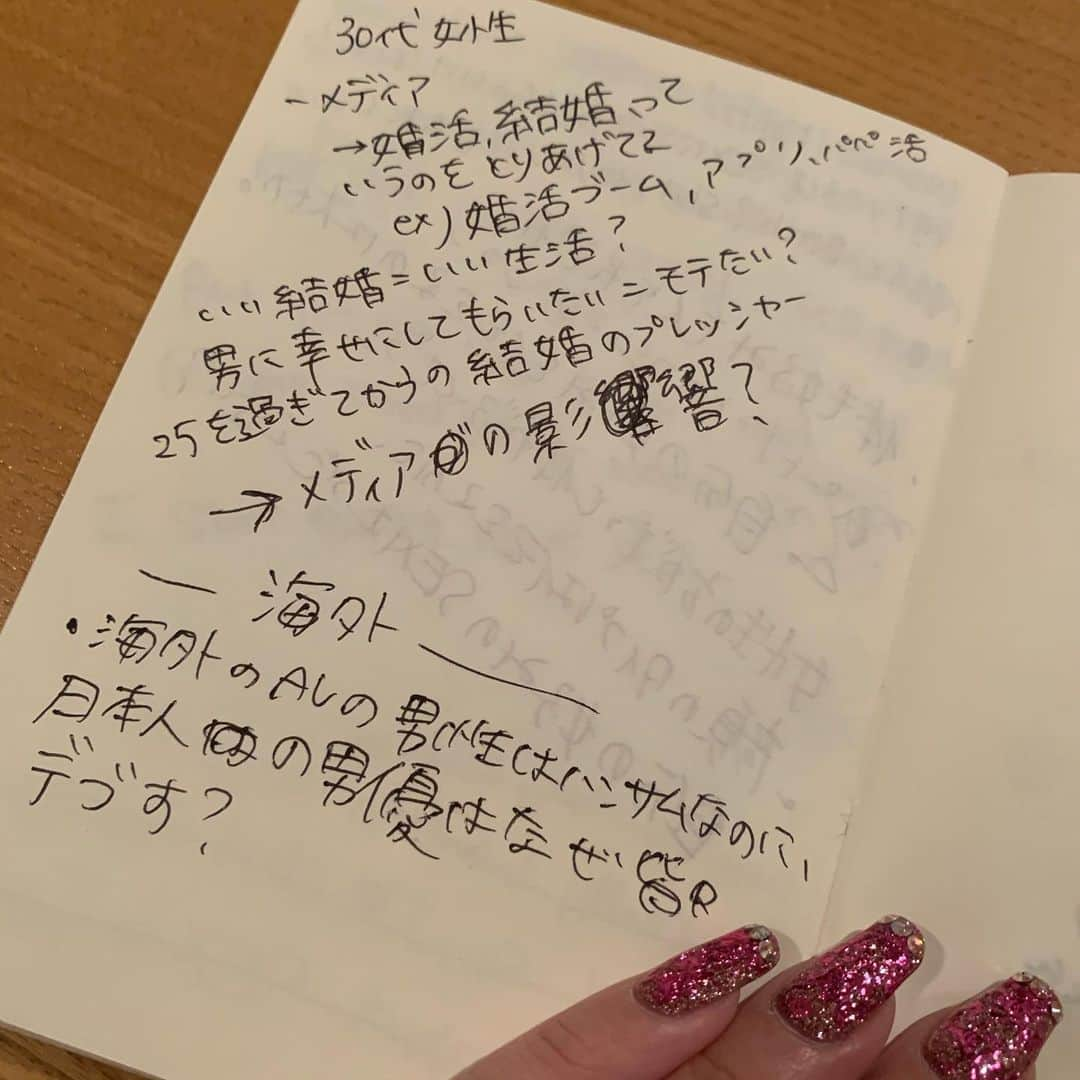 30代女性
ーメディア
→婚活、結婚って
いうのをとりあげてて
ex) 婚活ブーム、アプリ、パパ活
いい結婚=いい生活?
男に幸せにしてもらいたい=モテたい?
25を過ぎてからの結婚のプレッシャー
→メディアの影響?
— 海外 —
・海外のAVの男性はハンサムなのに、
日本人の男優はなぜ皆
デブす?